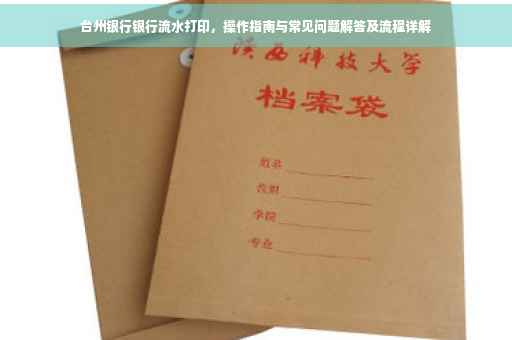 台州银行银行流水打印，操作指南与常见问题解答及流程详解
陕西科技大学
档案袋
姓名
学院
专业